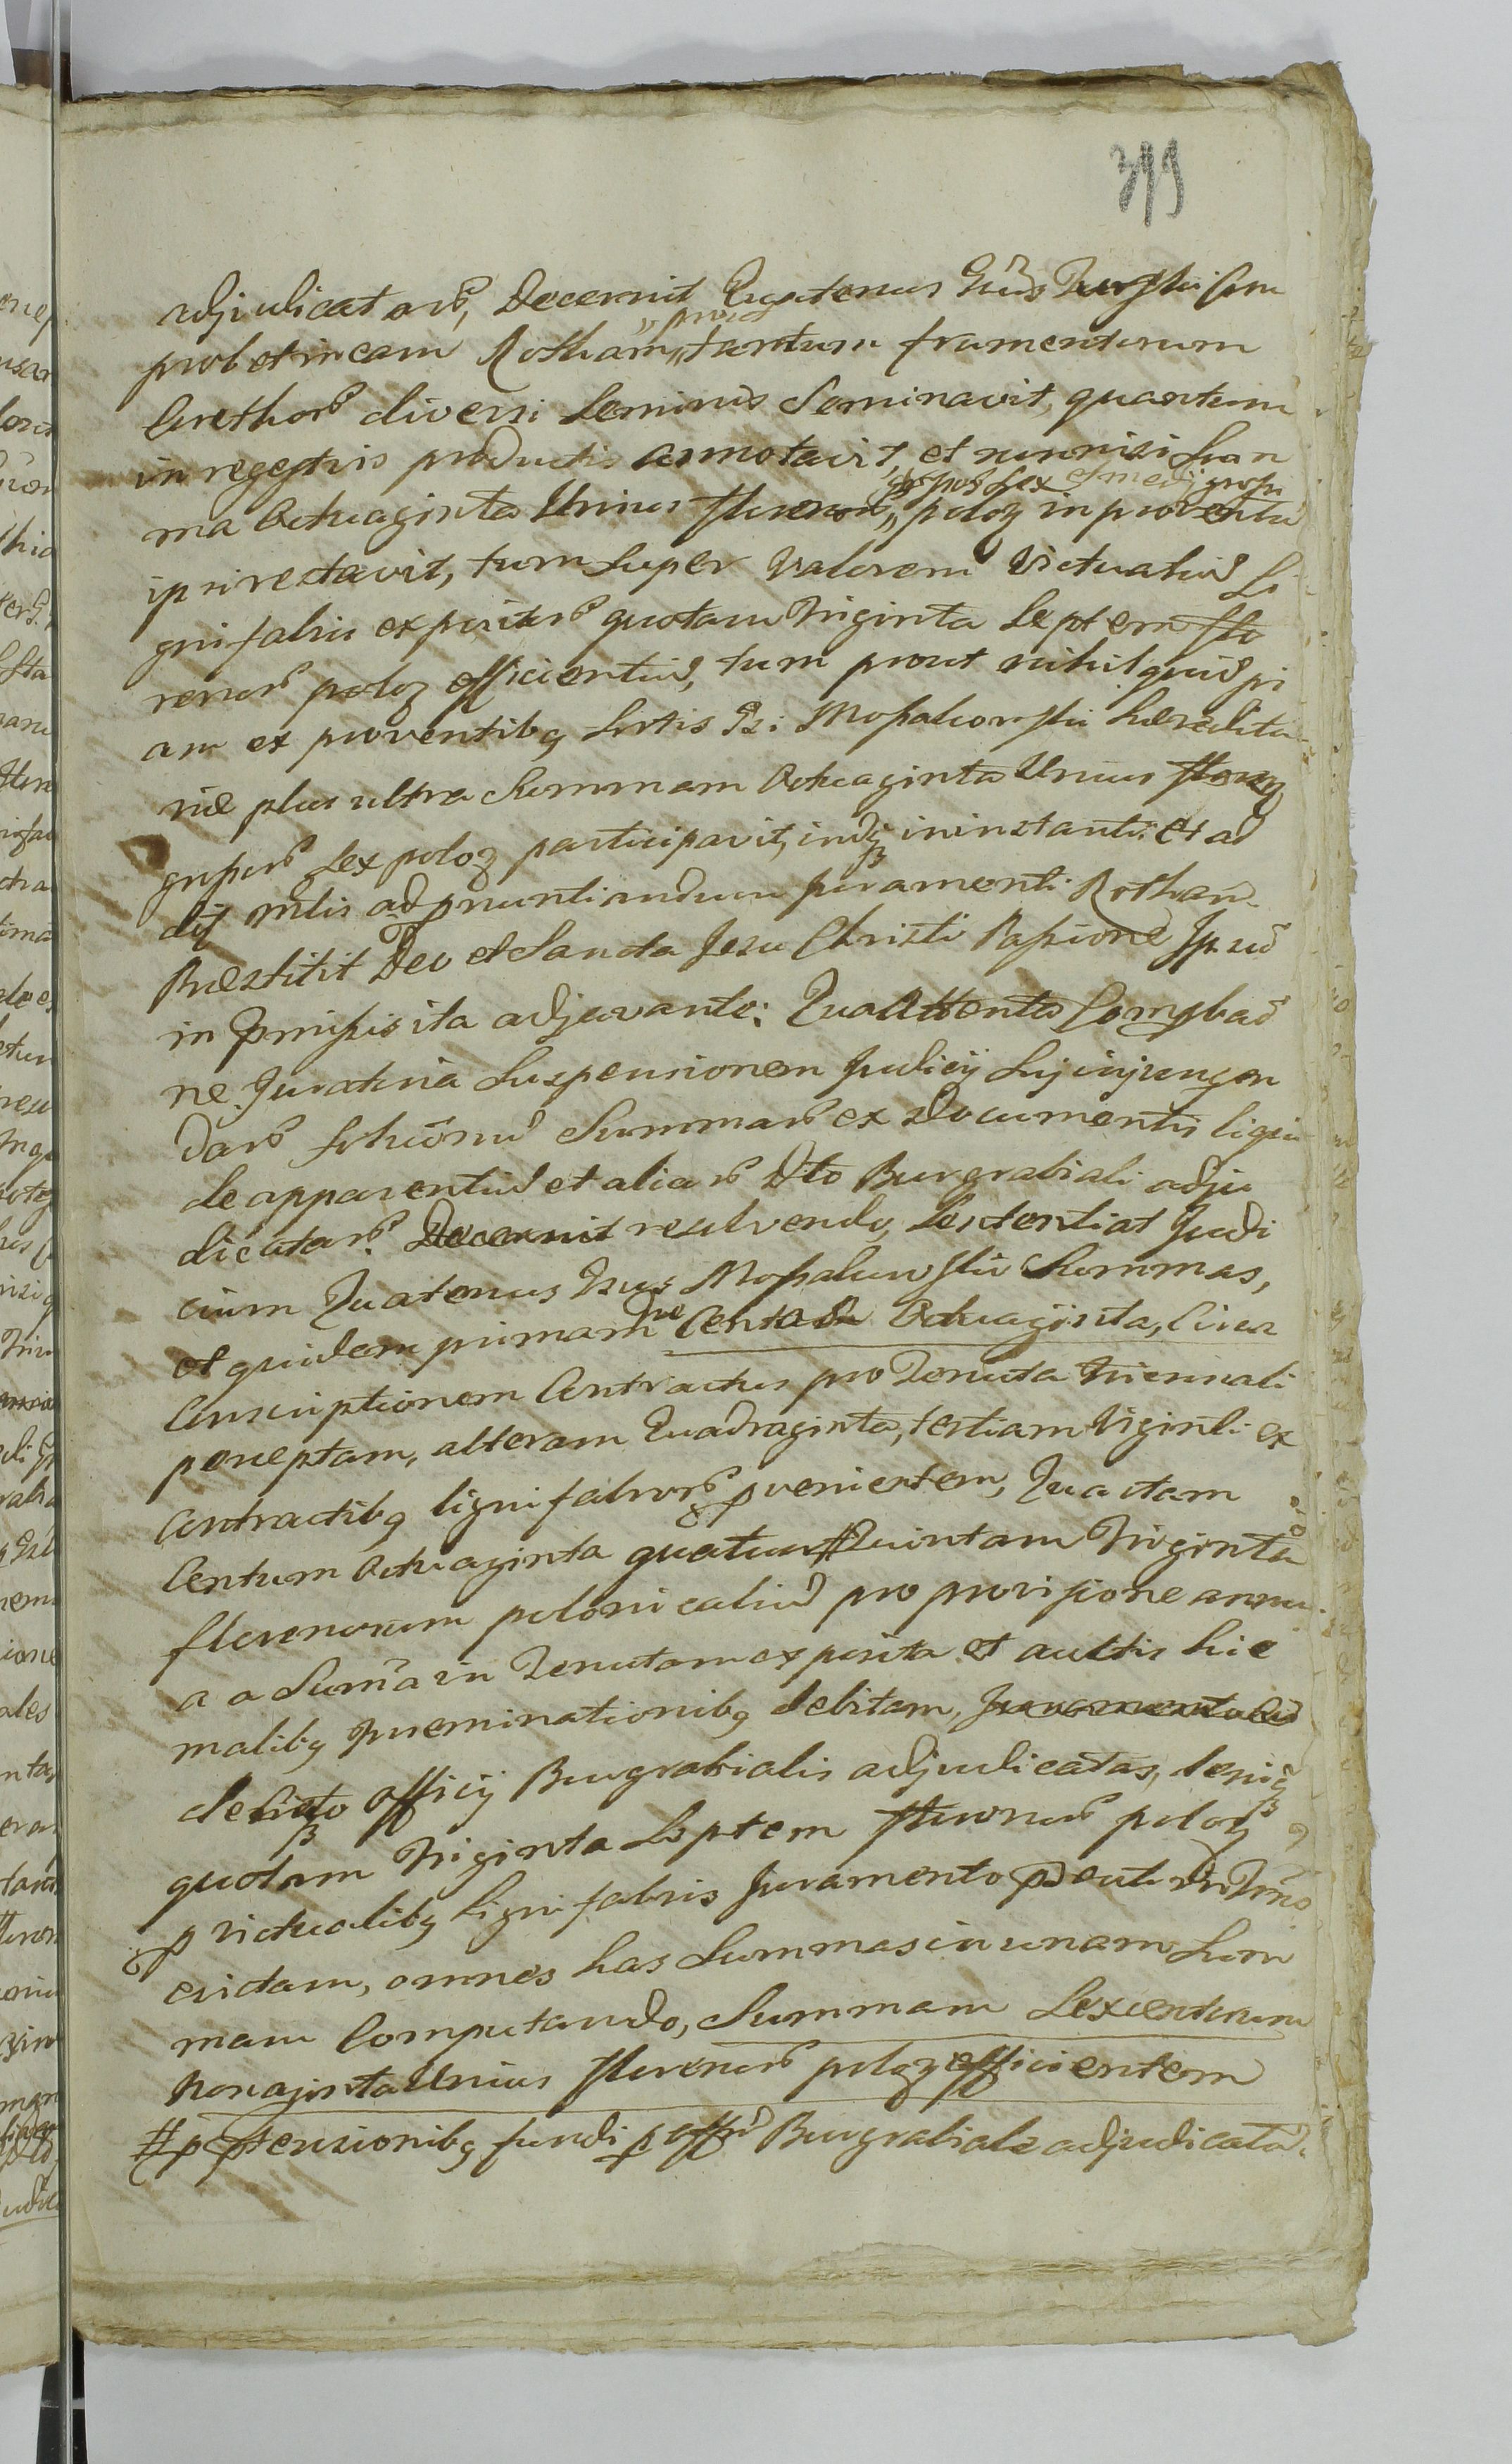 399
adjudicatarum, Decernit Quatenus
probet in eam Rotham "prout" tantum frumentorum
Corethorum diversi Seminis Seminavit, quantum
in regestris productis annotavit, et nunnisi Sum
ma Octuaginta Unius florenorum "grosos Sex et medij grossi" poloz in proventu
ipsi restavit, tum Super Valorem Victualium Li
gnifabris expositorum quotam Triginta Septem flo
renorum poloz efficientium, tum prout nihil quidpi
am ex proventibq Sortis Gsi Mossakowskii haeredita
riae plus ultra Summam Octuaginta Unius florenoz
grossorum Sex poloz participavit, indq in instanti et ad
dit Mtis ad pnuntiandum juramenti Rotham
Praestitit Deo et Sancta Jesu Christi Passione Ipsum
in Pmissis ita adjuvante: Qua Attenta Comprobatio
ne Juratoria Suspensionem Judicij Sui injungen
darum Solutionum Summarum ex Documentis liqui
de apparentium et aliarum Dto Burgrabiali adju
dicatarum. Decernit resolvendo, Sententiat Judi
cium Quatenus Gsus Mossakowskii Summas,
et quidem primam ne Centum Octuaginta, Circa
Conscriptionem Contractus pro Tenuta triennali
perceptam, alteram Quadraginta, tertiam Viginti ex
Contractibq lignifabrorum pvenientem, Quartam
Centum Octuaginta quatuor # Quintam Triginta
florenorum polonicalium pro provisione annu
a a Summa in Tenutam exposita et aultis hie
malibq Inseminationibq debitam,
decreto Officij Burgrabialis adjudicatas, deniq
quotam Triginta Septem florenorum poloz
p victualibq Lignifabris Juramento
evictam, omnes has Summas in unam Sum
mam Computando, Summam Sexcentorum
Nonaginta Unius florenorum poloz efficientem
# p Ptensionibq fundi p Offm Burgrabiale adjudicata